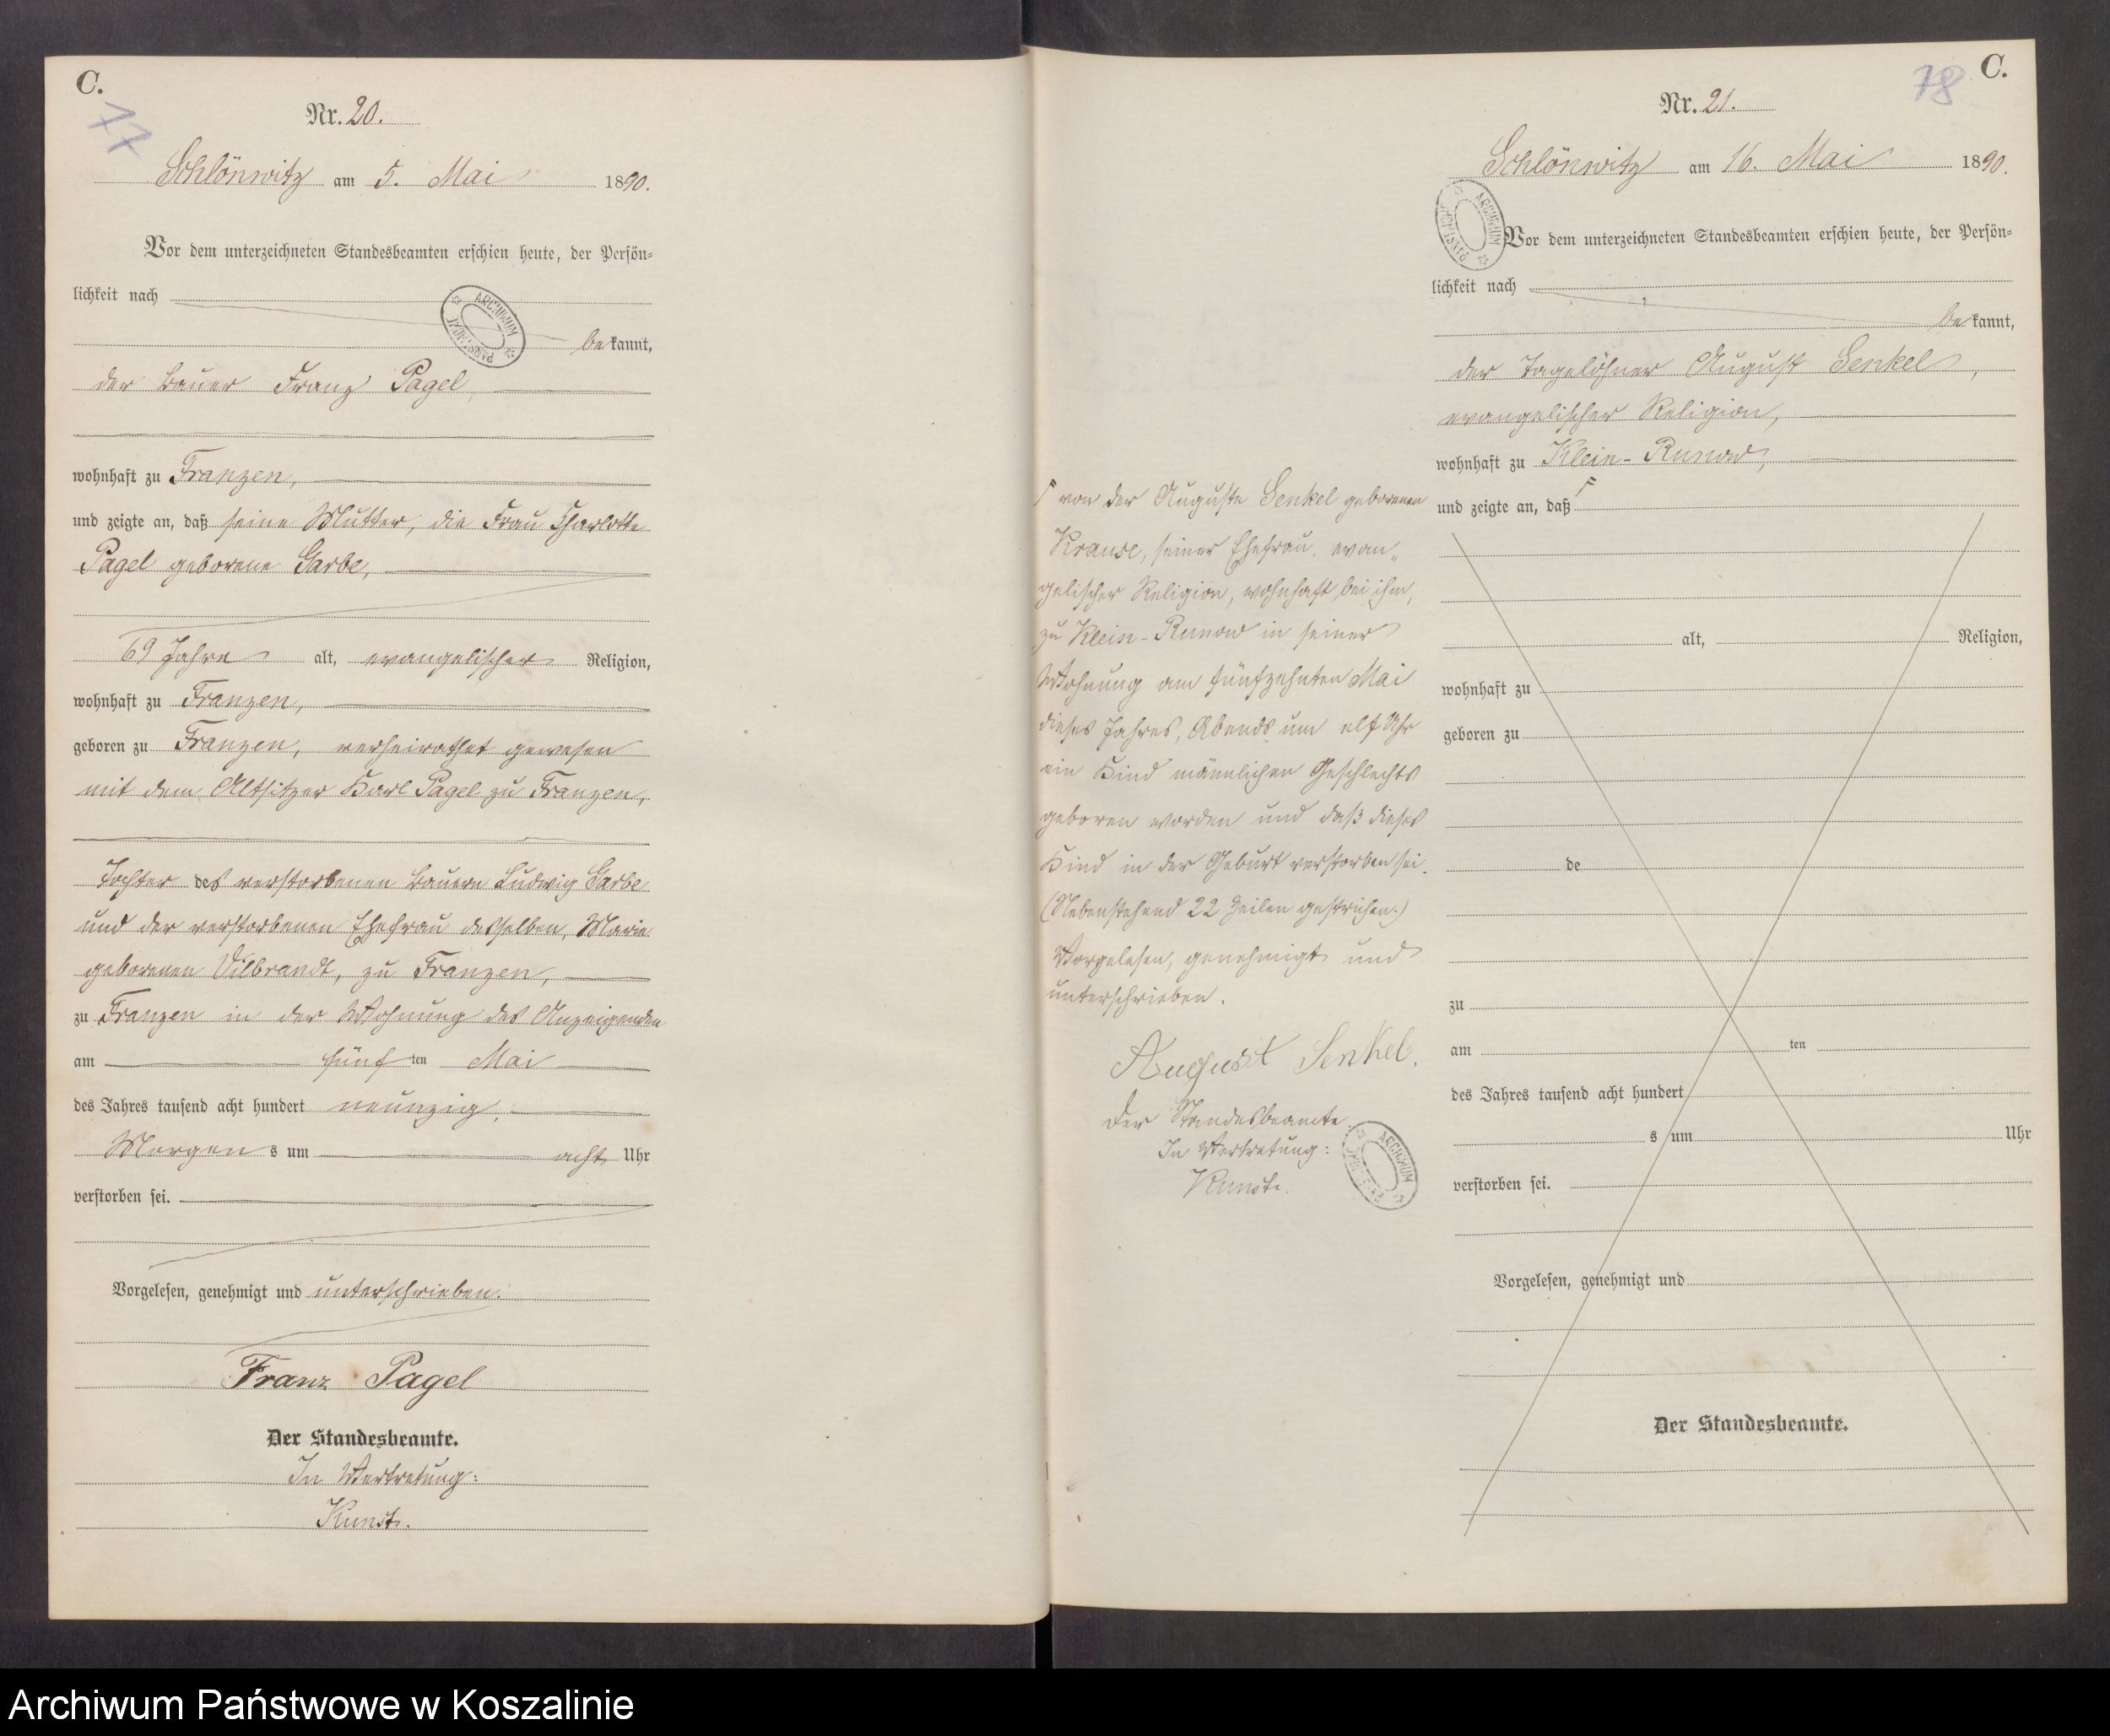 C.
77
Nr. 20.
Schlönwitz am 5. Mai 1890.
Vor dem unterzeichneten Standesbeamten erschien heute, der Persön-
lichkeit nach
bekannt,
der Bauer Franz Pagel,
wohnhaft zu Franzen,
und zeigte an, daß seine Mutter, die Frau Charlotte
Pagel geborene Garbe,
69 Jahre alt, evangelischer Religion,
wohnhaft zu Franzen,
geboren zu Franzen, verheirathet gewesen
mit dem Altsitzer Karl Pagel zu Franzen,
Tochter des verstorbenen Bauern Ludwig Garbe
und der verstorbenen Ehefrau desselben, Marie
geborenen Vilbrandt, zu Franzen,
zu Franzen in der Wohnung des Anzeigenden
am fünften Mai
des Jahres tausend acht hundert neunzig,
Morgens um acht Uhr
verstorben sei.
Vorgelesen, genehmigt und unterschrieben.
Franz Pagel
Der Standesbeamte.
In Vertretung:
Kunst.
ARCHIWUM PAŃSTWOWE
C.
78
Nr. 21.
Schlönwitz am 16. Mai 1890.
ARCHIWUM PAŃSTWOWE
Vor dem unterzeichneten Standesbeamten erschien heute, der Persön-
lichkeit nach
bekannt,
der Tagelöhner August Senkel,
evangelischer Religion,
wohnhaft zu Klein-Runow,
und zeigte an, daß
von der Auguste Senkel geborenen
Krause, seiner Ehefrau, evan-
gelischer Religion, wohnhaft bei ihm,
zu Klein-Runow in seiner
Wohnung am fünfzehnten Mai
dieses Jahres, Abends um elf Uhr
ein Kind männlichen Geschlechts
geboren worden und daß dieses
Kind in der Geburt verstorben sei.
(Nebenstehend 22 Zeilen gestrichen.)
Vorgelesen, genehmigt und
unterschrieben.
August Senkel.
Der Standesbeamte
In Vertretung:
Kunst.
ARCHIWUM PAŃSTWOWE
alt, Religion,
wohnhaft zu
geboren zu
de
zu
am ten
des Jahres tausend acht hundert
s um Uhr
verstorben sei.
Vorgelesen, genehmigt und
Der Standesbeamte.
Archiwum Państwowe w Koszalinie